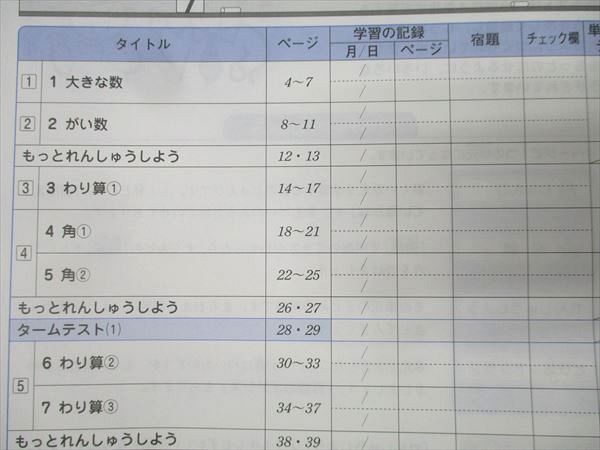 タイトル ページ 学習の記録 宿題 チェック欄 単
月/日 ページ
1 1 大きな数 4〜7
2 2 がい数 8〜11
もっとれんしゅうしよう 12・13
3 3 わり算① 14〜17
4 4 角① 18〜21
5 角② 22〜25
もっとれんしゅうしよう 26・27
タームテスト⑴ 28・29
5 6 わり算② 30〜33
7 わり算③ 34〜37
もっとれんしゅうしよう 38・39